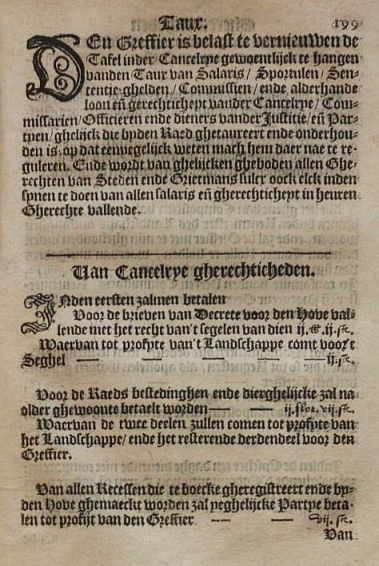 Taux. 199
DEn Greffier is belast te vernieuwen de
Tafel inder Cancelrye gewoentlijck te hangen
vanden Taux van Salaris / Sportulen / Sen-
tentie-ghelden / Commissien / ende alderhande
loon eñ gerechticheyt vander Cancelrye / Com-
missarien / Officieren ende dieners vander Justitie / eñ Par-
tyen / ghelijck die byden Raed ghetaxeert ende onderhou-
den is / op dat eenyegelijck weten mach hem daer nae te re-
guleren. Ende wordt van ghelijcken gheboden allen Ghe-
rechten van Steden ende Grietmans sulcx oock elck inden
synen te doen van allen salaris eñ gherechticheyt in heuren
Gherechte vallende.
Van Cancelrye gherechticheden.
INden eersten salmen betalen
Voor de brieven van Decrete voor den Hove val-
lende met het recht van 't segelen van dien ij. ₶. ij. sc.
Waervan tot profyte van 't Landschappe comt voor 't
Seghel — — — — ij. sc.
Voor de Raeds bestedinghen ende dierghelijcke zal na
older ghewoonte betaelt worden — — ij. flor. vij. sc.
Waervan de twee deelen zullen comen tot profyte van
het Landschappe / ende het resterende derdendeel voor den
Greffier.
Van allen Recessen die te boecke gheregistreert ende by-
den Hove ghemaeckt worden zal yeghelijcke Partye beta-
len tot profijt van den Greffier — — vij. sc.
Van